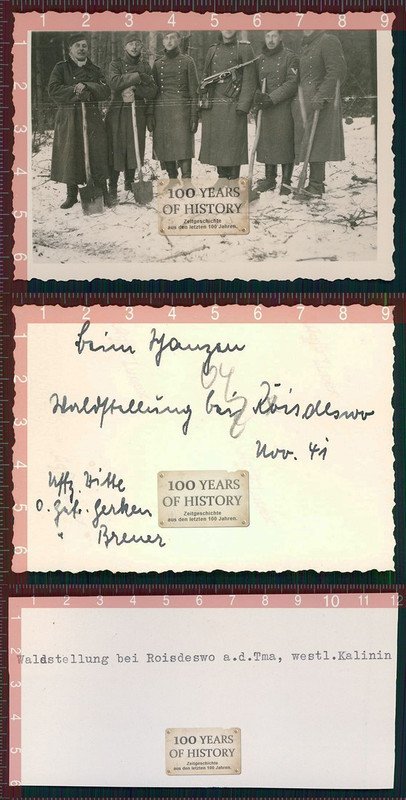 1 2 3 4 5 6 7 8 9
1
2
3
4
5
6
100 YEARS
OF HISTORY
Zeitgeschichte
aus den letzten 100 Jahren.
1 2 3 4 5 6 7 8 9
1
2
3
4
5
6
beim
Waldstellung bei Roisdeswo
Nov. 41
Uffz. Witte
O. Gefr. Gerken
" Breuer
100 YEARS
OF HISTORY
Zeitgeschichte
aus den letzten 100 Jahren.
1 2 3 4 5 6 7 8 9 10 11 12
1
2
3
4
5
Waldstellung bei Roisdeswo a.d.Tma, westl.Kalinin
100 YEARS
OF HISTORY
Zeitgeschichte
aus den letzten 100 Jahren.